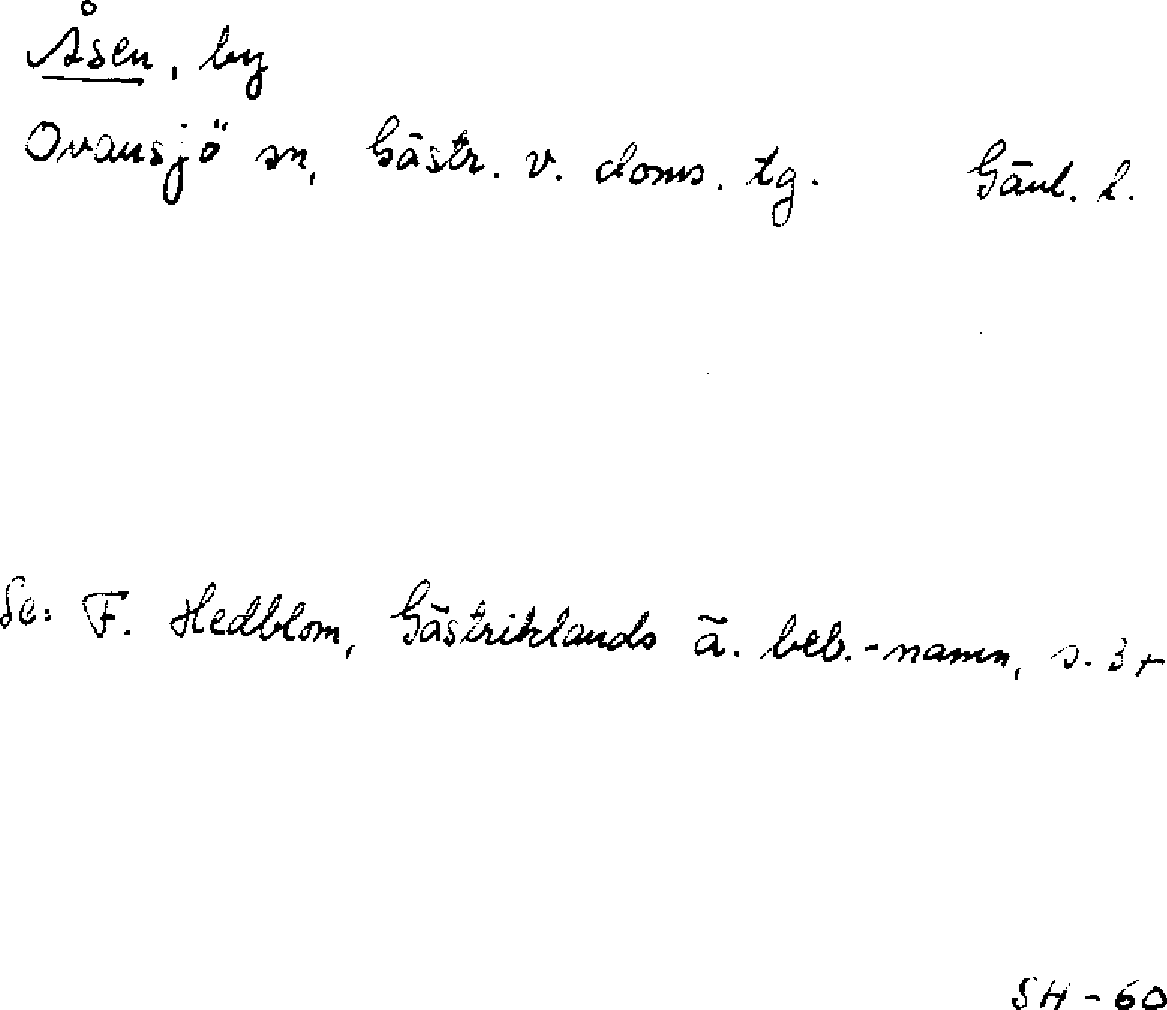 Åsen, by
Ovansjö sn, Gästr. v. doms. tg. Gävl. l.
Se: F. Hedblom, Gästriklands ä. beb.-namn, s.
SH - 60